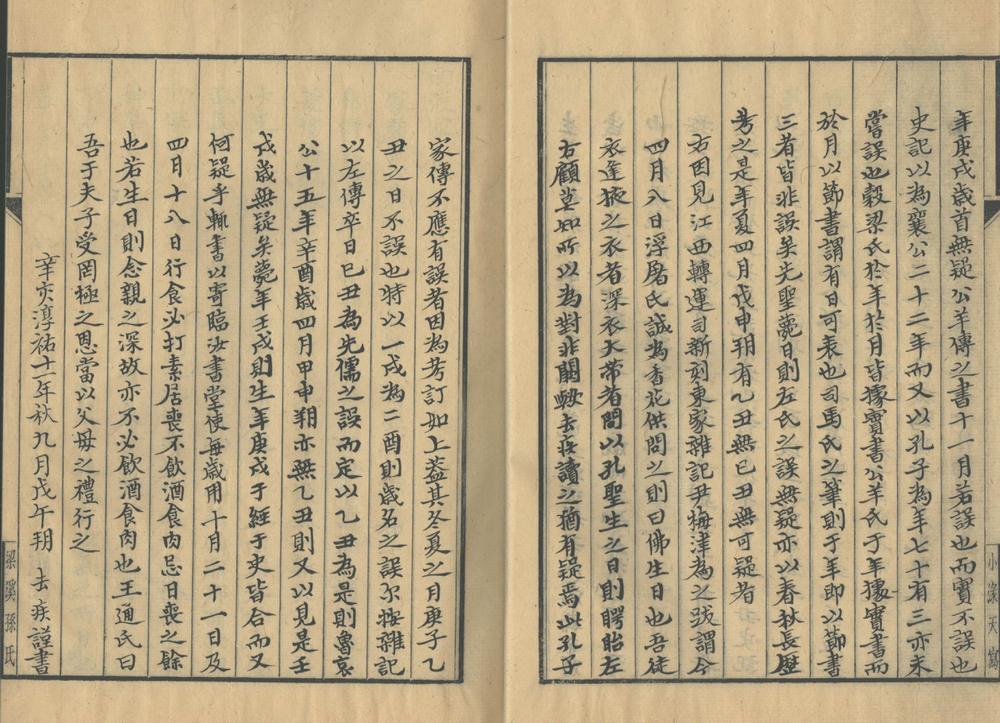 年庚戌歲首無疑公羊傳之書十一月若誤也而實不誤也
史記以為襄公二十二年而又以孔子為年七十有三亦未
當誤也穀梁氏於年於月皆據實書公羊氏于年據實書而
於月以節書謂有日可表也司馬氏之筆則于年即以節書
三者皆非誤矣先聖薨日則左氏之誤無疑亦以春秋長歷
考之是年夏四月戊申朔有乙丑無巳丑無可疑者
右因見江西轉運司新刻東家雜記尹梅津為之跋謂今
四月八日浮屠氏誠為香花供問之則曰佛生日也吾徒
衣逢掖之衣者深衣大帶者問以孔聖生之日則愕眙左
右顧莫知所以為對非闕歟去疾讀之猶有疑焉此孔子
家傳不應有誤者因為考訂如上蓋其冬夏之月庚子乙
丑之日不誤也特以一戌為二酉則歲名之誤尔按雜記
以左傳卒日巳丑為先儒之誤而定以乙丑為是則魯哀
公十五年辛酉歲四月甲申朔亦無乙丑則又以見是壬
戌歲無疑矣薨年壬戌則生年庚戌于經于史皆合而又
何疑乎輒書以寄臨汝書堂使每歲用十月二十一日及
四月十八日行食必打素居喪不飲酒食肉忌日喪之餘
也若生日則念親之深故亦不必飲酒食肉也王通氏曰
吾于夫子受罔極之恩當以父母之禮行之
辛亥淳祐十一年秋九月戊午朔 去疾謹書
小淥天寫
梁溪孫氏